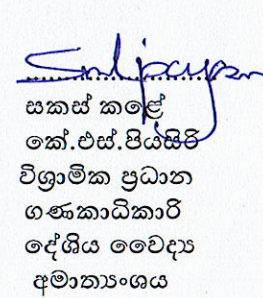 සකස් කළේ
කේ.එස්.පියසිරි
විශ්‍රාමික ප්‍රධාන
ගණකාධිකාරි
දේශිය වෛද්‍ය
අමාත්‍යංශය